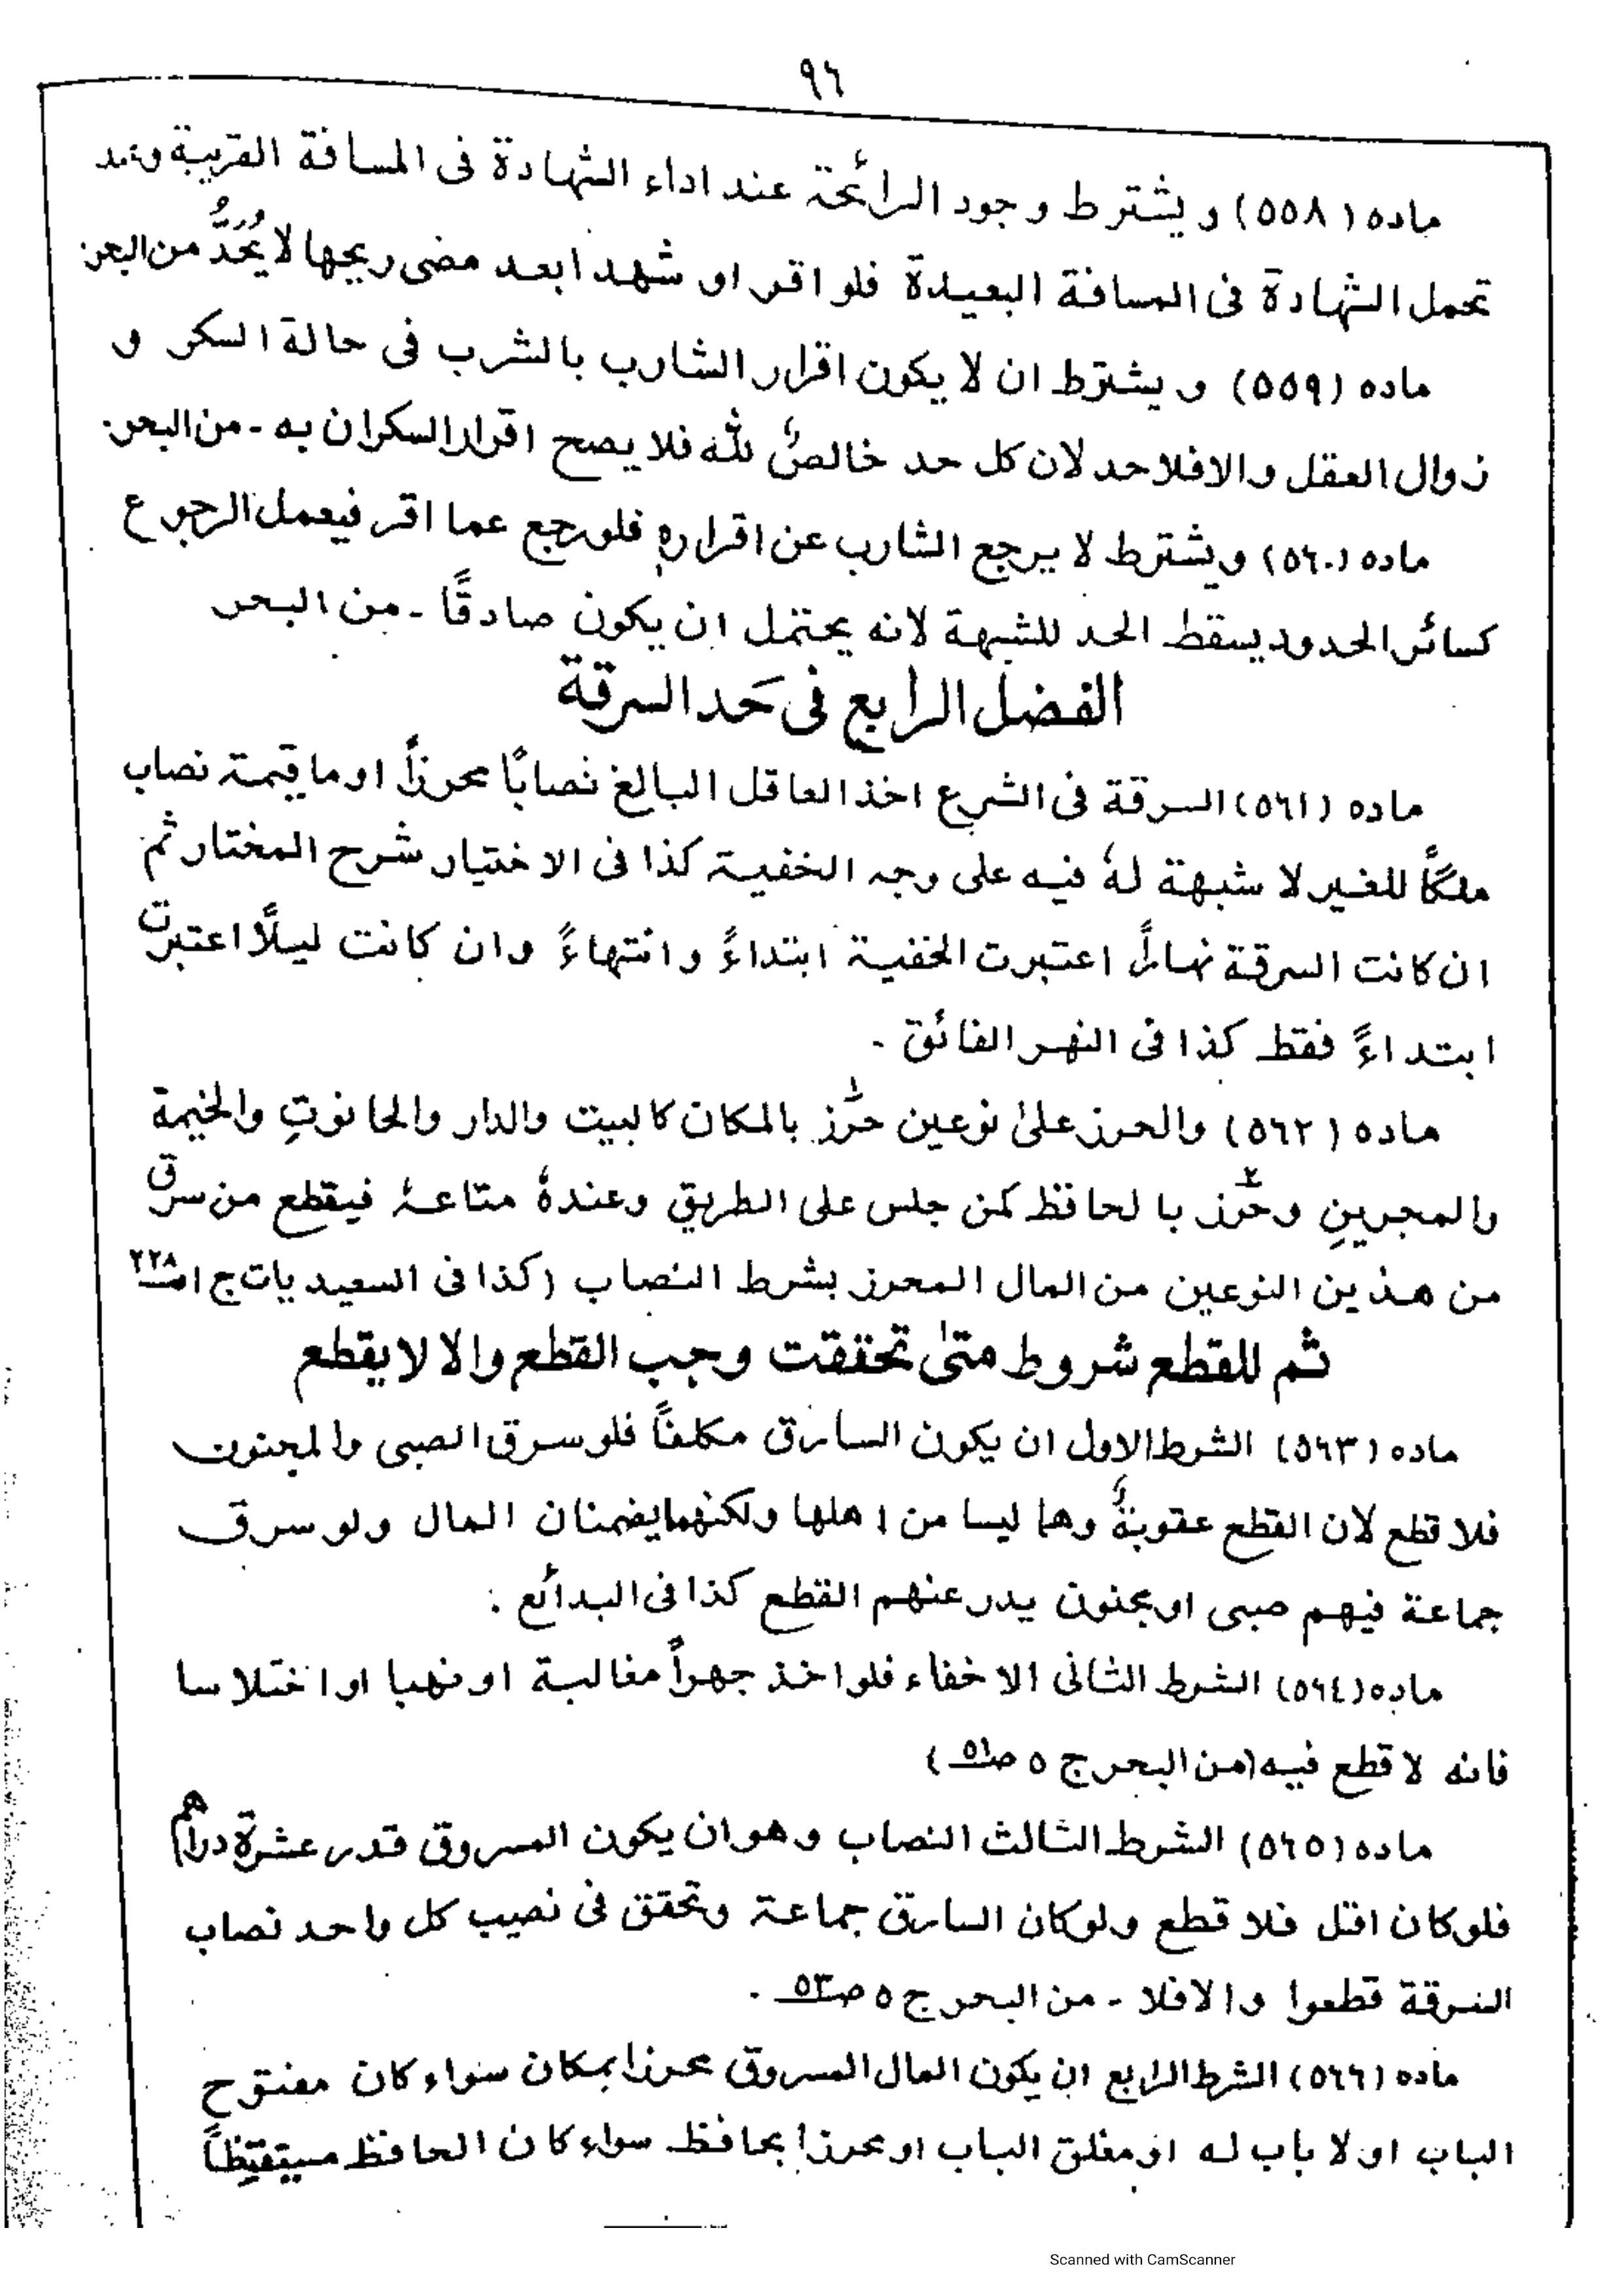 ٩٦
ماده (٥٥٨) و يشترط وجود الرائحة عند اداء الشهادة فى المسافة القريبة وعند
تحمل الشهادة فى المسافة البعيدة فلو اقر او شهدا بعد مضى ريحها لا يُحَدُّ من البحر.
ماده (٥٥٩) و يشترط ان لا يكون اقرار الشارب بالشرب فى حالة السكر و
زوال العقل والا فلا حد لان كل حد خالصٌ لله فلا يصح اقرار السكران به - من البحر.
ماده (٥٦٠) ويشترط لا يرجع الشارب عن اقراره فلو رجع عما اقر فيعمل الرجوع
كسائر الحدود يسقط الحد للشبهة لانه يحتمل ان يكون صادقًا - من البحر
الفصل الرابع فى حَد السرقة
ماده (٥٦١) السرقة فى الشرع اخذ العاقل البالغ نصابًا محرزاً او ما قيمته نصاب
ملكًا للغير لا شبهة لهٗ فيه على وجه الخفية كذا فى الاختيار شرح المختار ثم
ان كانت السرقة نهاراً اعتبرت الخفية ابتداءً وانتهاءً وان كانت ليلًا اعتبرت
ابتداءً فقط كذا فى النهر الفائق .
ماده (٥٦٢) والحرز علىٰ نوعين حرز ١ بالمكان كالبيت والدار والحانوتِ والخيمة
والمجرينِ وحرز ٢ بالحافظ كمن جلس على الطريق وعندهٗ متاعهٗ فيقطع من سرق
من هذين النوعين من المال المحرز بشرط النصاب (كذا فى السعيديات ج ١ صـ٢٢٨
ثم للقطع شروط متىٰ تحققت وجب القطع والا لا يقطع
ماده (٥٦٣) الشرط الاول ان يكون السارق مكلفاً فلو سرق الصبى والمجنون
فلا قطع لان القطع عقوبةٌ وهما ليسا من اهلها ولكنهما يضمنان المال ولو سرق
جماعة فيهم صبى او مجنون يدر عنهم القطع كذا فى البدائع :
ماده (٥٦٤) الشرط الثانى الاخفاء فلو اخذ جهراً مغالبة او نهبا او اختلاسا
فانه لا قطع فيه (من البحر ج ٥ صـ٥١)
ماده (٥٦٥) الشرط الثالث النصاب وهو ان يكون المسروق قدر عشرة دراهم
فلو كان اقل فلا قطع ولو كان السارق جماعة وتحقق فى نصيب كل واحد نصاب
السرقة قطعوا والا فلا - من البحر ج ٥ صـ٥٣ .
ماده (٥٦٦) الشرط الرابع ان يكون المال المسروق محرزا بمكان سواء كان مفتوح
الباب او لا باب له او مغلق الباب او محرزا بحافظ سواء كان الحافظ مستيقظاً
Scanned with CamScanner